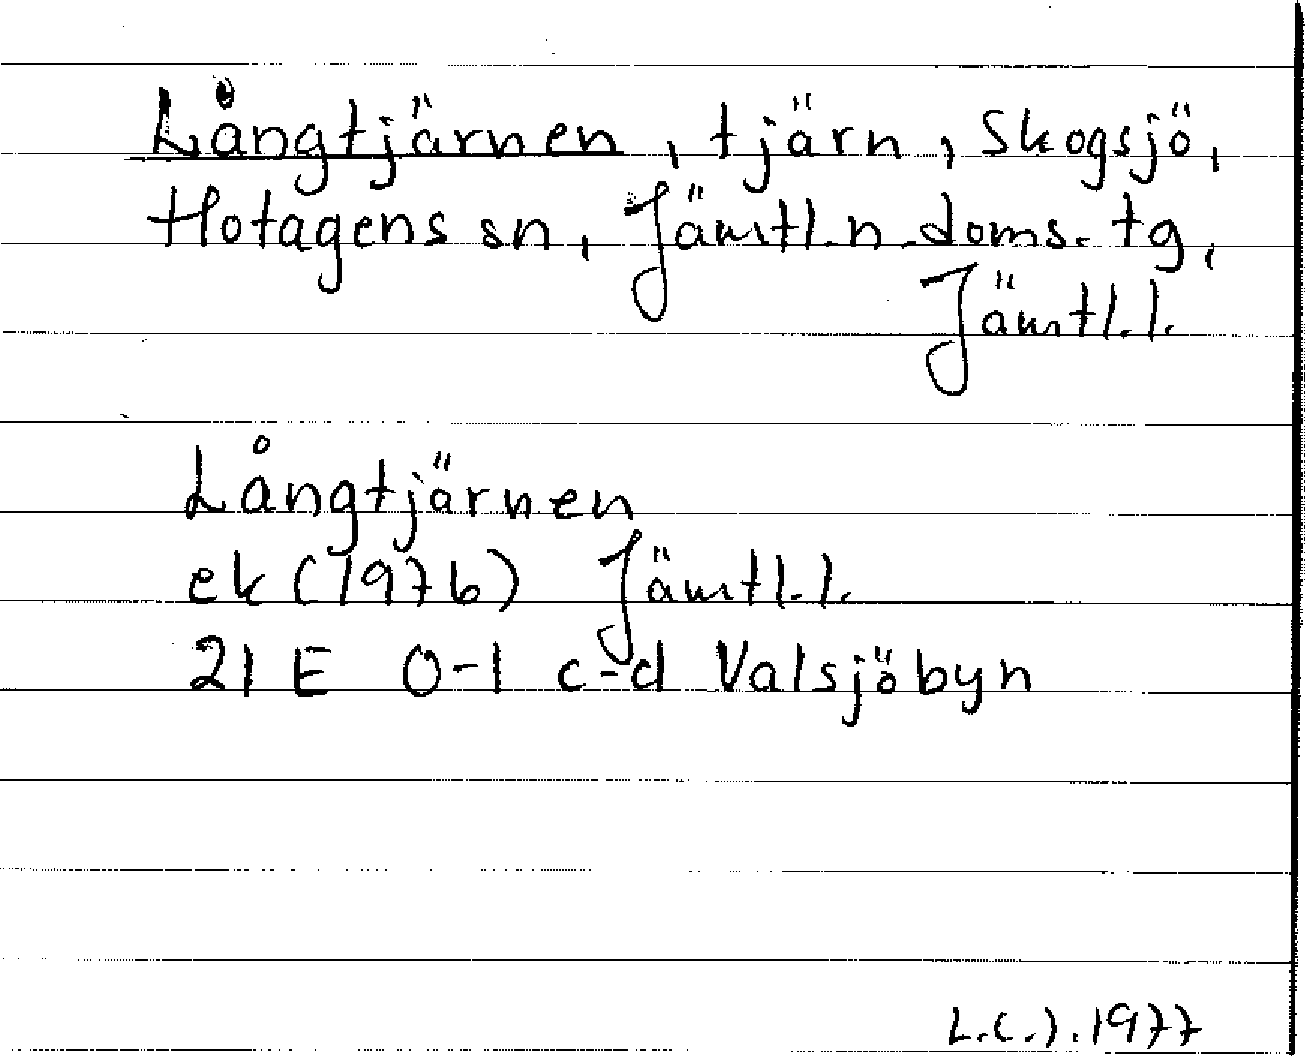 Långtjärnen, tjärn, Skogsjö,
Hotagens sn, Jämtl. n. doms. tg,
Jämtl. l.
Långtjärnen
ek (1976) Jämtl. l.
21 E 0-1 c-d Valsjöbyn
1977